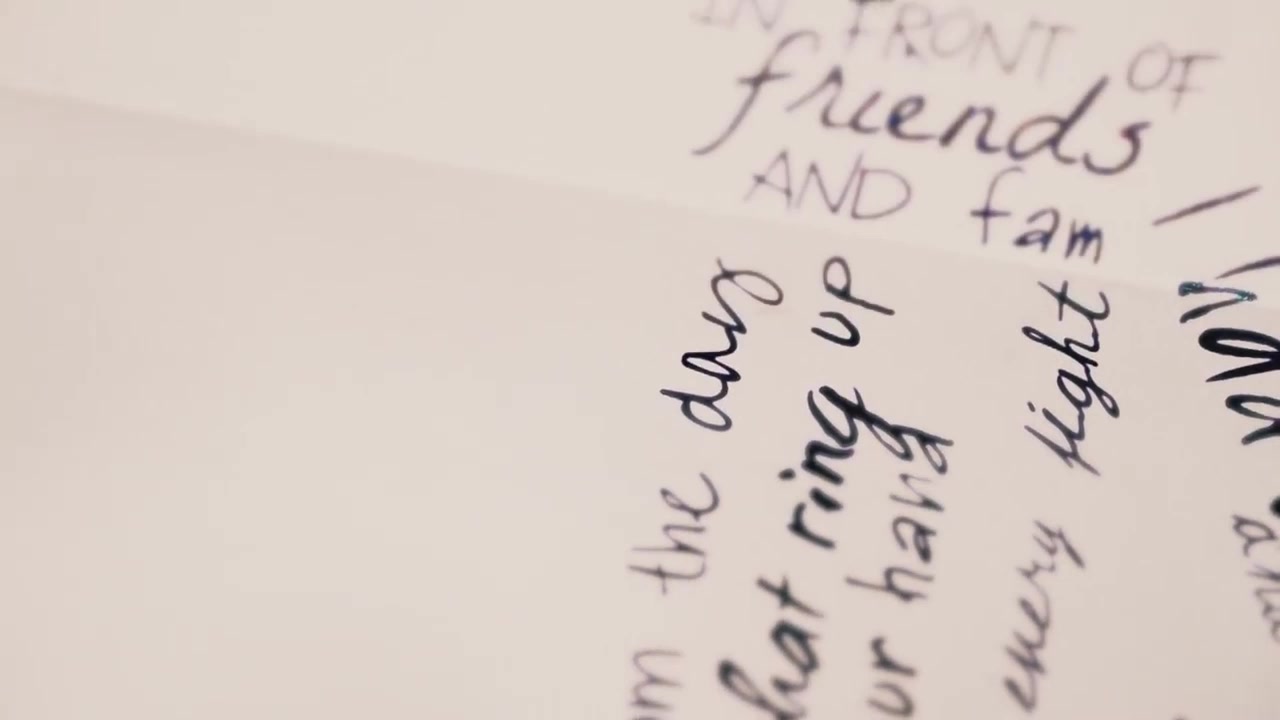 IN FRONT OF
friends
AND fam
the day
hat ring up
ur hand
every fight